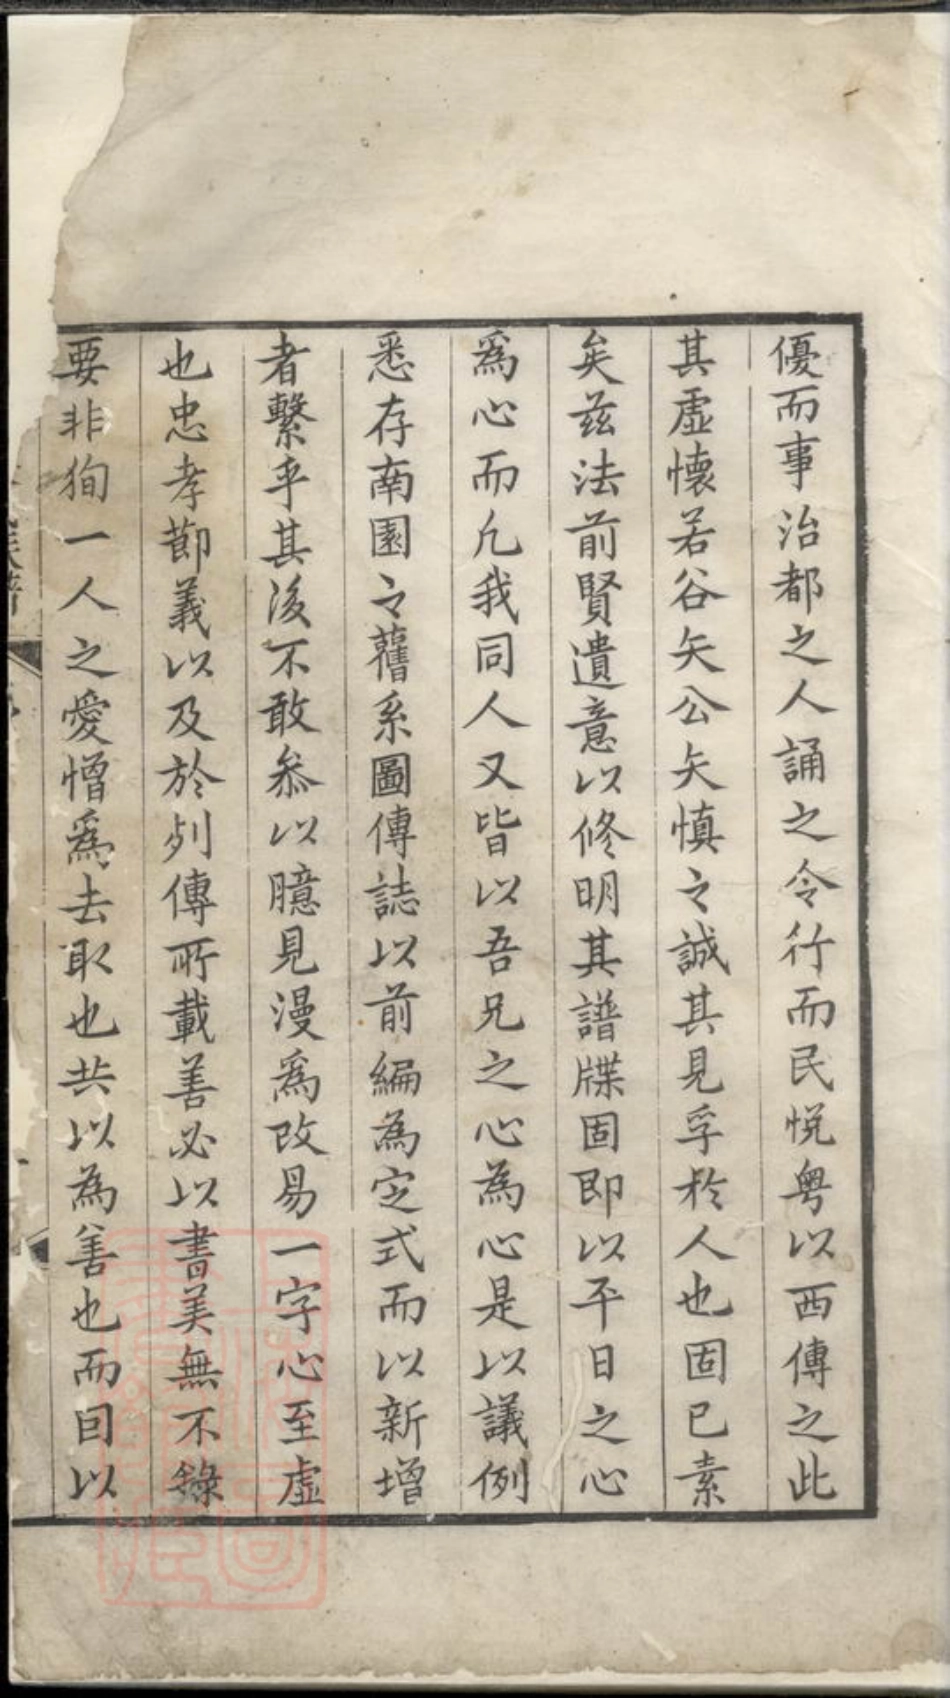 優而事治都之人誦之令行而民悅粵以西傳之此
其虛懷若谷矢公矢慎之誠其見孚於人也固已素
矣茲法前賢遺意以修明其譜牒固即以平日之心
爲心而凢我同人又皆以吾兄之心為心是以議例
悉存南園之舊系圖傳誌以前編為定式而以新增
者繫乎其後不敢叅以臆見漫爲改易一字心至虛
也忠孝節義以及於列傳所載善必以書美無不錄
要非狥一人之愛憎爲去取也共以為善也而因以